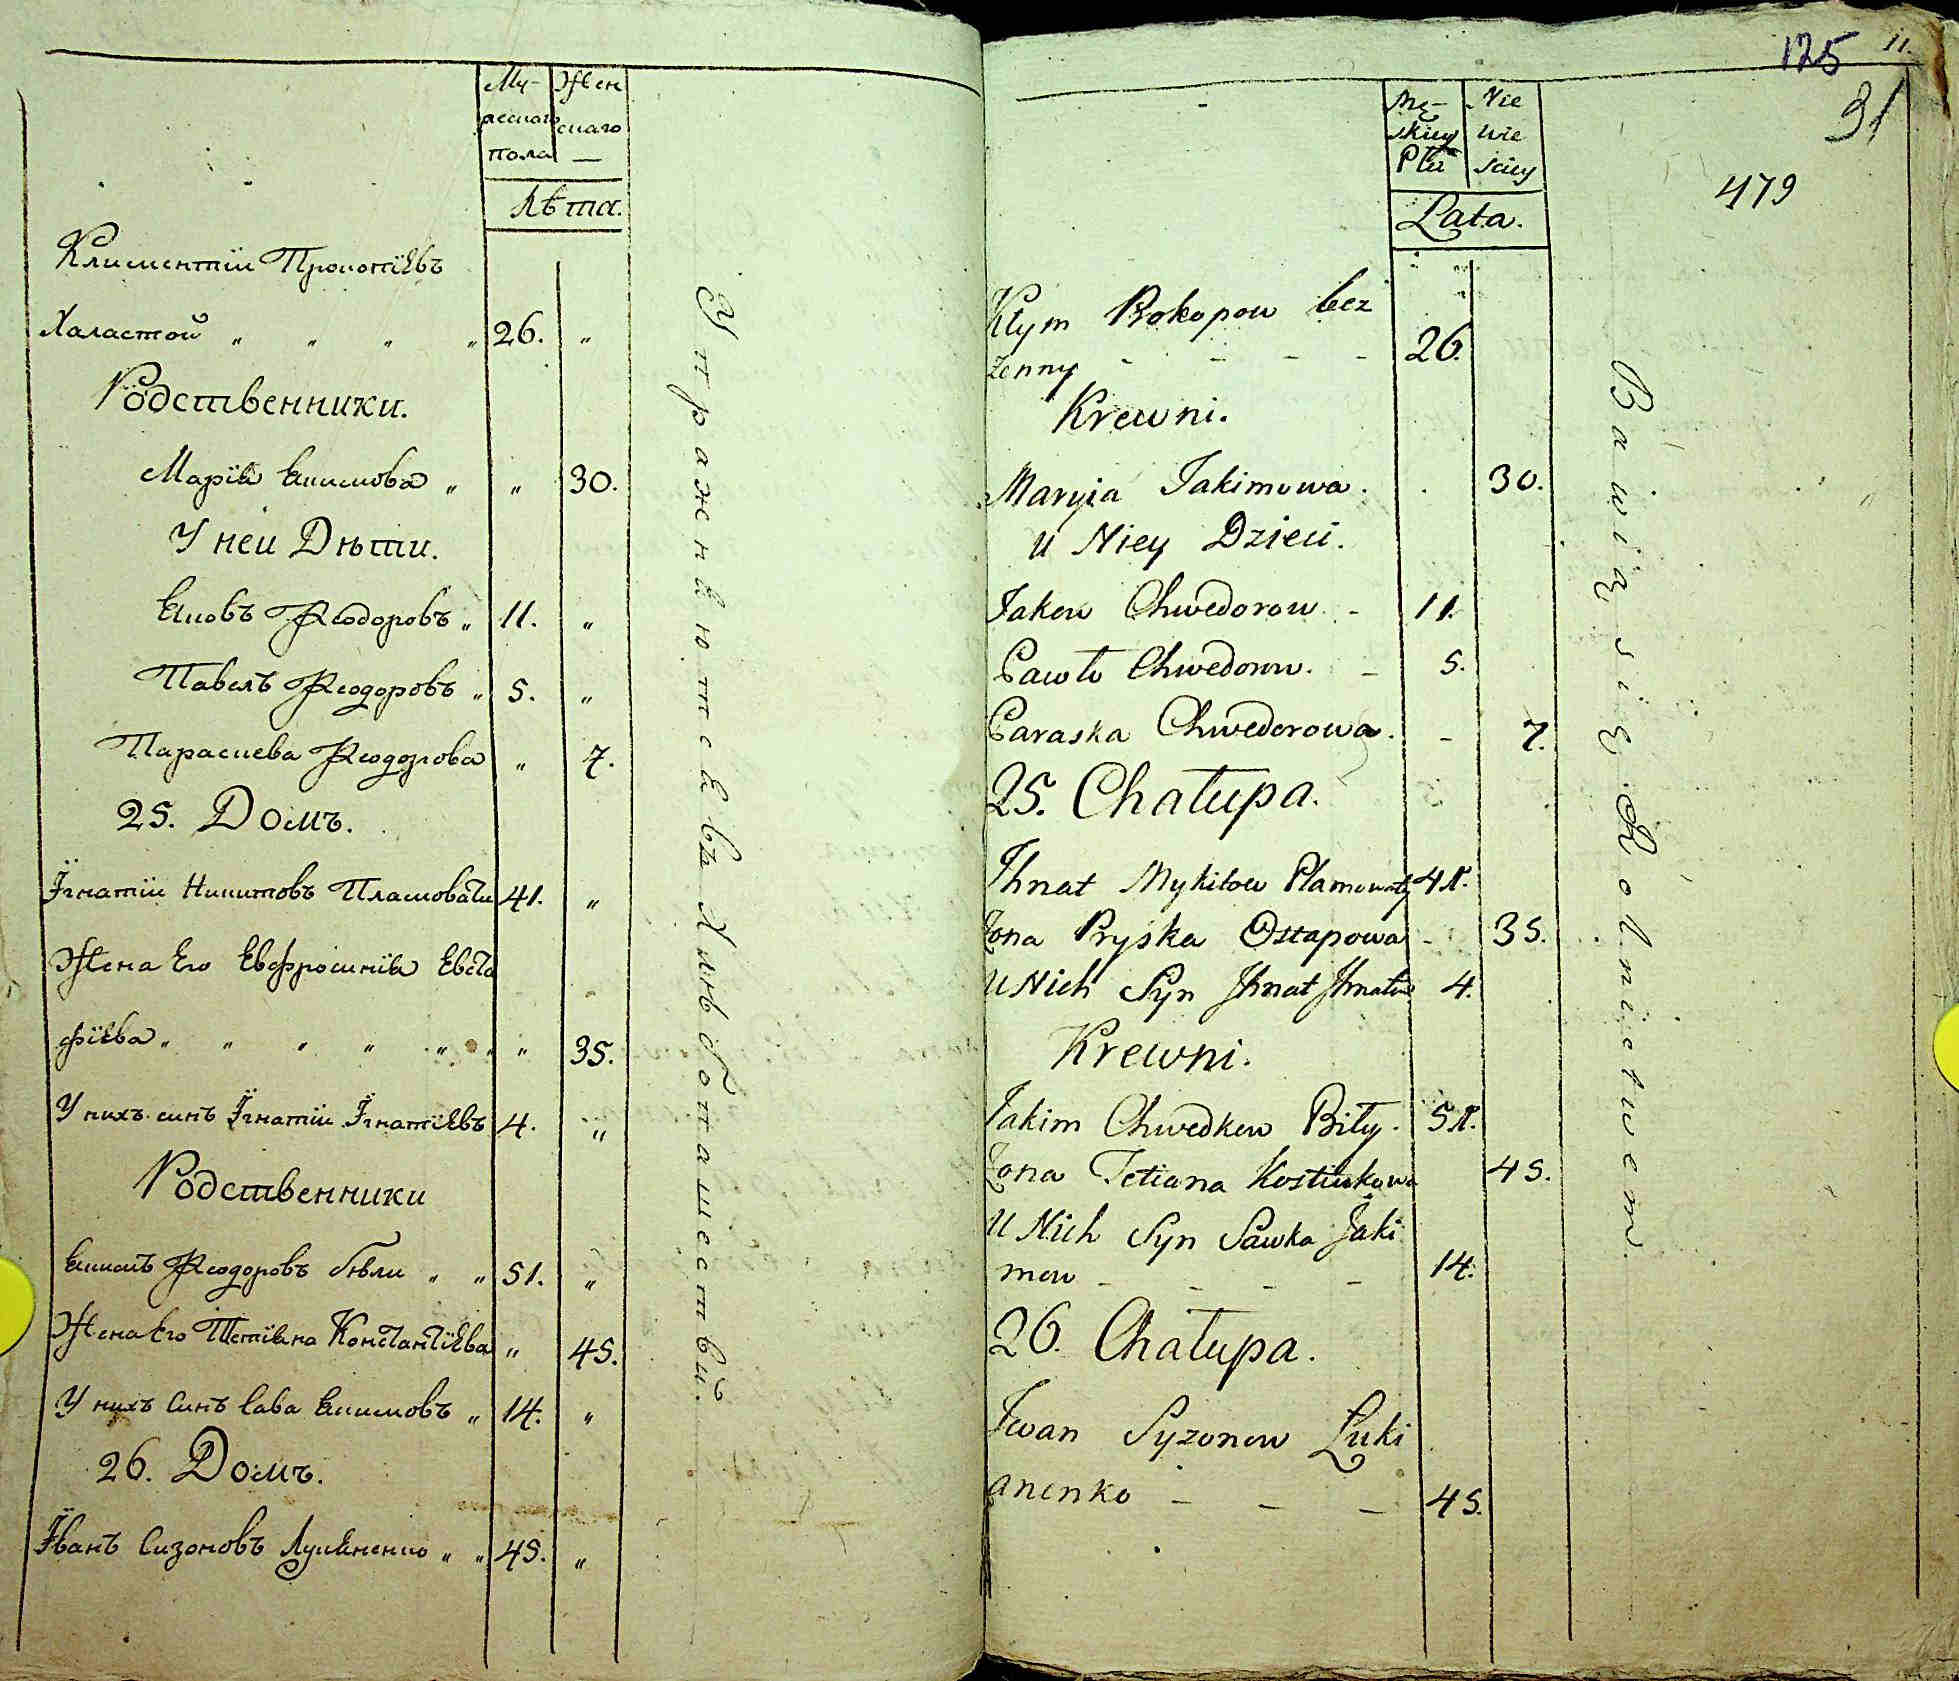 Му- Жен
жескаго скаго
пола —
Лѣта.
Климентїи Прокопїевъ
Халастой „ „ „ „ 26. „
Родственники.
Марїя Якимова „ „ 30.
У ней Дѣти.
Яковъ Ѳеодоровъ „ 11. „
Павелъ Ѳеодоровъ „ 5. „
Параскева Ѳеодорова „ 7.
25. Домъ.
Їгнатїи Никитовъ Пламоватїи 41. „
Жена Его Евфросинїя Евста
фїева „ „ „ „ „ „ „ 35.
У нихъ синъ Їгнатїи Їгнатїевъ 4. „
Родственники
Якимъ Ѳеодоровъ бѣли „ „ 51. „
Жена Его Тетїяна Константїева „ 45.
У нихъ Синъ Сава Якимовъ „ 14. „
26. Домъ.
Їванъ Сизоновъ Лукяненко „ „ 45. „
Упражняются въ Хлѣбопашествѣ.
125
11.
31
479
Mę- Nie
skiey wie
Płci sciey
Lata.
Kłym Prokopow bez
żenny - - - - 26.
Krewni.
Maryia Jakimowa. . 30.
U Niey Dzieci.
Jakow Chwedorow - 11.
Pawło Chwedorow. - 5.
Paraska Chwedorowa. - 7.
25. Chałupa.
Ihnat Mykitow Plamowaty 41.
Żona Pryska Ostapowa - 35.
U Nich Syn Ihnat Ihnatow 4.
Krewni.
Jakim Chwedkow Biły. 51.
Żona Tetiana Kostiukowa 45.
U Nich Syn Sawka Jaki
mow - - - - 14.
26. Chałupa.
Iwan Syzonow Łuki
anenko - - - 45.
Bawią się Rolnictwem.